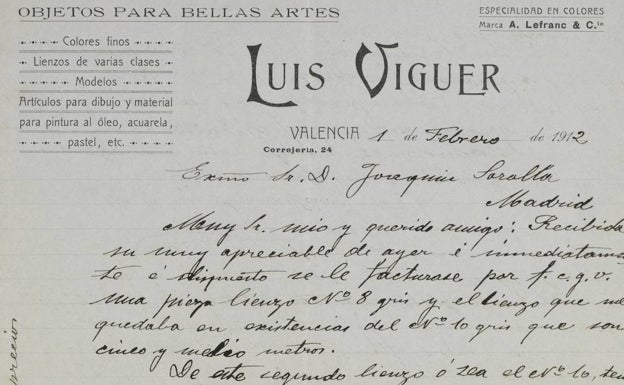 OBJETOS PARA BELLAS ARTES
ESPECIALIDAD EN COLORES
Marca A. Lefranc & C.ie
Colores finos
Lienzos de varias clases
Modelos
Artículos para dibujo y material
para pintura al óleo, acuarela,
pastel, etc.
LUIS VIGUER
VALENCIA 1 de Febrero de 1912
Correjería, 24
Exmo Sr. D. Joaquin Sorolla
Madrid
Muy Sr. mio y querido amigo: Recibida
su muy apreciable de ayer é inmediatamen
te é dispuesto se le facturase por f. c. g. v.
una pieza lienzo Nº 8 gris y el lienzo que me
quedaba en existencias del Nº 10 gris que son
cinco y medio metros.
De este segundo lienzo ó sea el Nº 10, ten
precios